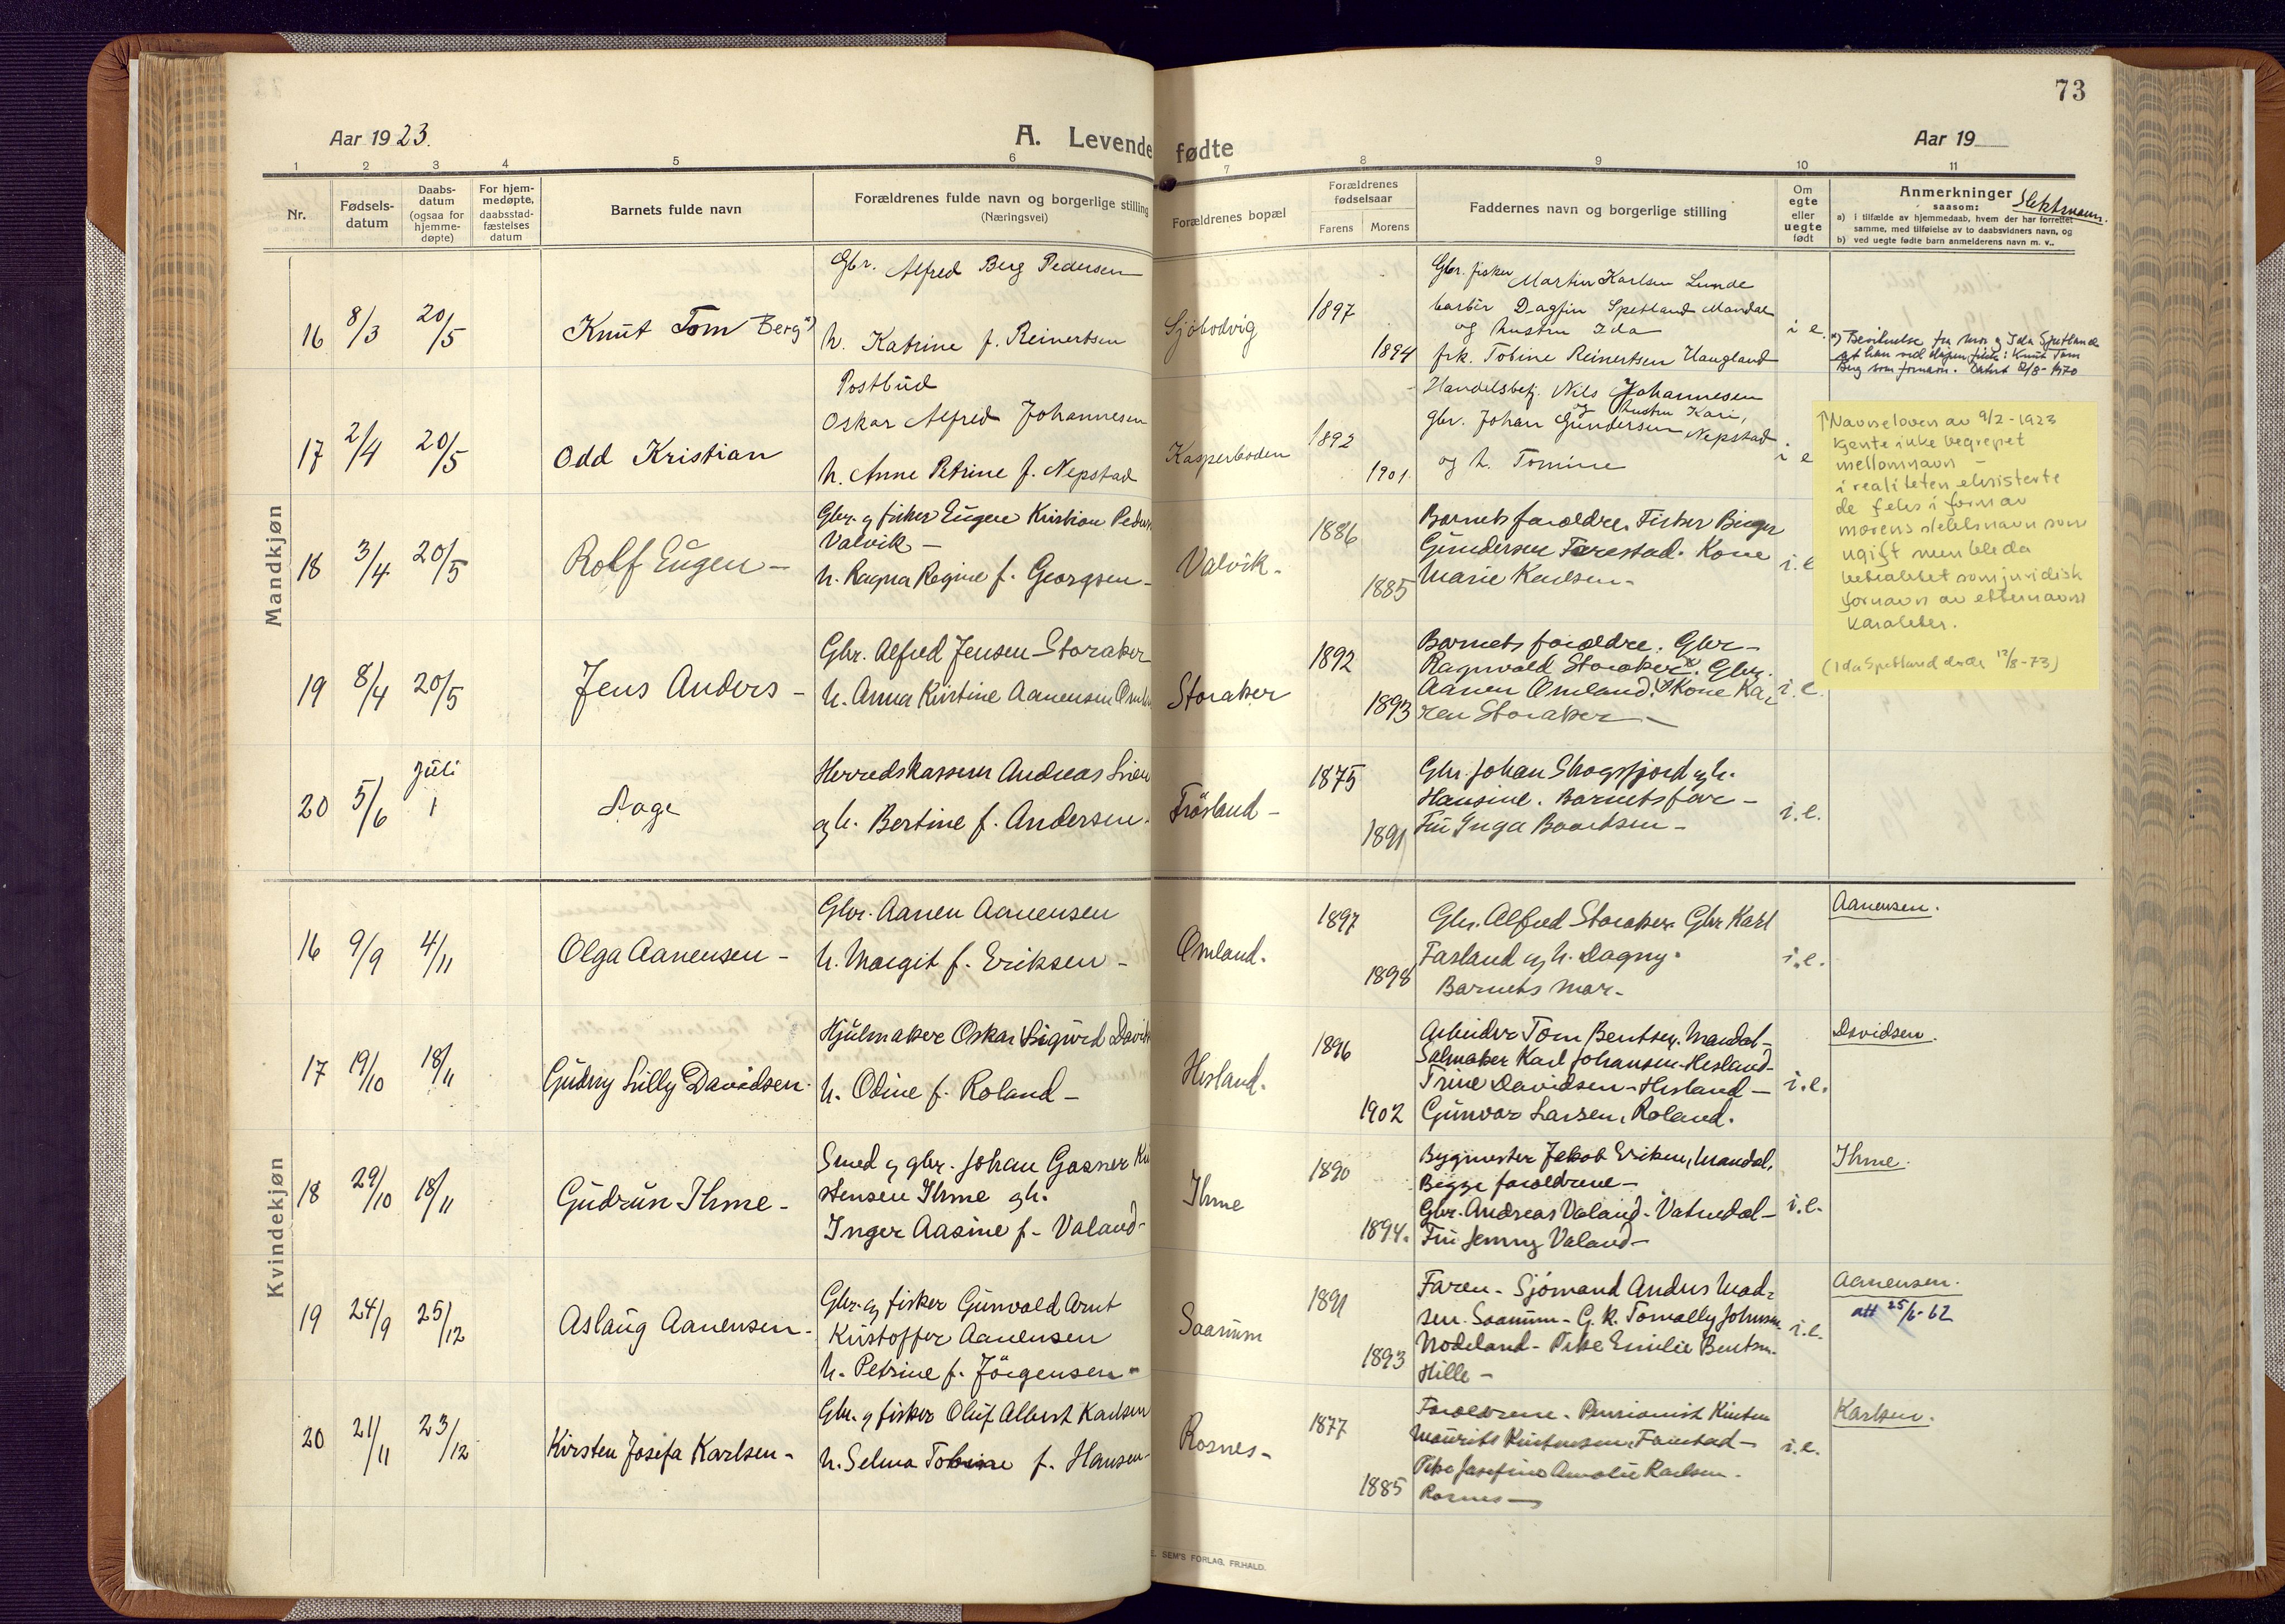 73
Aar 1923.
A. Levende fødte
Aar 19
1 2 3 4 5 6 7 8 9 10 11
Nr.
Fødsels-
datum
Daabs-
datum
(ogsaa for
hjemme-
døpte)
For hjem-
medøpte,
daabsstad-
fæstelses
datum
Barnets fulde navn
Forældrenes fulde navn og borgerlige stilling
(Næringsvei)
Forældrenes bopæl
Forældrenes
fødselsaar
Farens Morens
Faddernes navn og borgerlige stilling
Om
egte
eller
uegte
født
Anmerkninger
saasom: Slektsnavn.
a) i tilfælde av hjemmedaab, hvem der har forrettet
samme, med tilføielse av to daabsvidners navn, og
b) ved uegte fødte barn anmelderens navn m. v..
Mandkjøn
16 8/3 20/5
Knut Tom Berg x)
Gbr. Alfred Berg Pedersen
h. Katrine f. Reinertsen
Sjøbodvig
1897
1894
Gbr. fisker Martin Karlsen Lunde
barbér Dagfin Spetland Mandal
og hustru Ida
frk. Tobine Reinertsen Haugland
i e
17 2/4 20/5
Odd Kristian
Postbud
Oskar Alfred Johannesen
h. Anne Petrine f. Nepstad
Kasperboden
1892
1901.
Handelsbetj. Nils Johannesen
og hustru Kari,
Gbr. Johan Gundersen Nepstad
og h. Tomine
i e
↑ Navneloven av 9/2-1923
kjente ikke begrepet
mellomnavn –
i realiteten eksisterte
de feks i form av
morens slektsnavn som
ugift men ble da
betraktet som juridisk
fornavn av etternavns
karakter.
(Ida Spetland døde 12/8-73)
18 3/4 20/5
Rolf Eugen –
Gbr. og fisker Eugen Kristian
Valvik –
h. Ragna Regine f. Georgsen –
Valvik.
1886
1885
Barnets forældre, Fisker Birger
Gundersen Farestad. Kone
Marie Karlsen –
i. e
19 8/4 20/5
Jens Anders –
Gbr. Alfred Jensen Storaker
h. Anna Kirstine Aanensen
Storaker
1892
1893
Barnets forældre. Gbr –
Ragnvald Storaker. Gbr.
Aanen Ømland. Kone Ka-
ren Storaker –
i. e.
20 5/6 Juli 1
Aage
Herredskasserer Andreas
og h. Bertine f. Andersen.
Frøsland –
1875
1891
Gbr. Johan Skogsfjord og h.
Hansine. Barnets far –
Frk. Inga Baardsen –
i. e.
Kvindekjøn
16 9/9 4/11
Olga Aanensen –
Gbr. Aanen Aanensen
h. Margit f. Eriksen –
Ømland.
1897
1898
Gbr. Alfred Storaker. Gbr Karl
Farland og h. Dagny.
Barnets mor –
i. e.
Aanensen.
17 19/10 18/11
Gudny Lilly Davidsen.
Hjulmaker Oskar Sigurd
h. Odine f. Roland –
Hesland.
1896
1902
Arbeider Tom Bentsen, Mandal –
Salmaker Karl Johansen Hesland –
Trine Davidsen – Hesland –
Gunvor Larsen, Roland.
i. e.
Davidsen.
18 29/10 18/11
Gudrun Ihme –
Smed og gbr. Johan Gasner Kri
stensen Ihme og h.
Inger Aasine f. Valand –
Ihme
1890
1894.
Bygmester Jakob Eriksen, Mandal,
Begge forældrene –
Gbr. Andreas Valand. Vatnedal –
Frk Jenny Valand –
i. e.
Ihme.
19 24/9 25/12
Aslaug Aanensen –
Gbr. og fisker Gunvald Arnt
Kristoffer Aanensen
h. Petrine f. Jørgensen –
Saanum
1891
1893
Faren – Sjømand Anders Mad-
sen. Saanum –
Nodeland – Pike Emilie Bentsen.
Hille –
i. e.
Aanensen.
att 25/6-62
20 21/11 23/12
Kirsten Josefa Karlsen –
Gbr. og fisker Oluf Albert Karlsen
h. Selma Tobine f. Hansen
Rosnes –
1877
1885
Forældrene – Pensionist
Pike Josefine Amalie Karlsen.
Rosnes –
i. e.
Karlsen.
SEM'S FORLAG, FR.HALD.